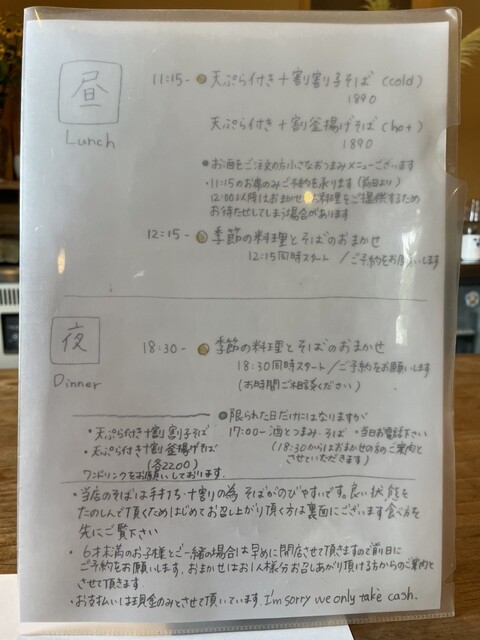 昼
Lunch
11:15- 天ぷら付き十割割り子そば (cold)
1890
天ぷら付き十割釜揚げそば (hot)
1890
●お酒をご注文の方小さなおつまみメニューございます
・11:15のお席のみご予約を承ります(前日より)
12:00以降はおまかせのお料理をご提供するため
お待たせしてしまう場合があります
12:15- 季節の料理とそばのおまかせ
12:15同時スタート/ご予約をお願いします
夜
Dinner
18:30- 季節の料理とそばのおまかせ
18:30同時スタート/ご予約をお願いします
(お時間ご相談ください)
●限られた日だけにはなりますが
17:00- 酒とつまみ・そば ・当日お電話下さい
(18:30からはおまかせの方のご案内と
させていただきます)
・天ぷら付き十割 割り子そば
・天ぷら付き十割 釜揚げそば
(各2200)
ワンドリンクをお願いしております。
・当店のそばは手打ち・十割りの為 そばがのびやすいです。良い状態を
たのしんで頂くためはじめてお召し上がり頂く方は裏面にございます食べ方を
先にご覧下さい
・6才未満のお子様とご一緒の場合は早めに閉店させて頂きますので前日に
ご予約をお願いします。おまかせはお1人様分お召しあがり頂ける方からのご案内と
させて頂きます
・お支払いは現金のみとさせて頂いています。I'm sorry we only take cash.